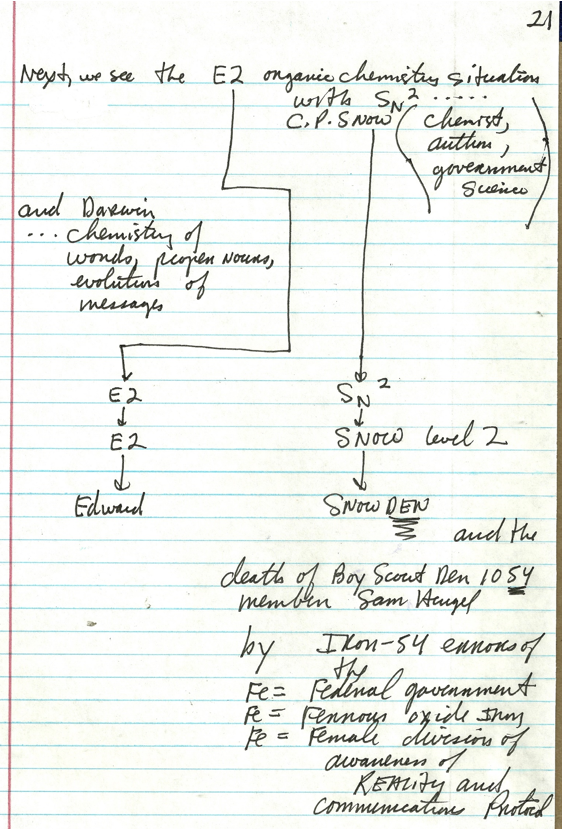 21
Next, we see the E2 organic chemistry situation
with SN2 ......
C.P. SNOW
(chemist,
author,
government
Science)
and Darwin
... chemistry of
words, proper nouns,
evolution of
messages
E2
SN2
E2
SNOW level 2
Edward
SNOWDEN
and the
death of Boy Scout Den 1054
member Sam Hengel
by IRON-54 errors of
the
Fe = Federal government
Fe = Ferrous oxide Iron
Fe = Female division of
awareness of
REALity and
communications Protocol